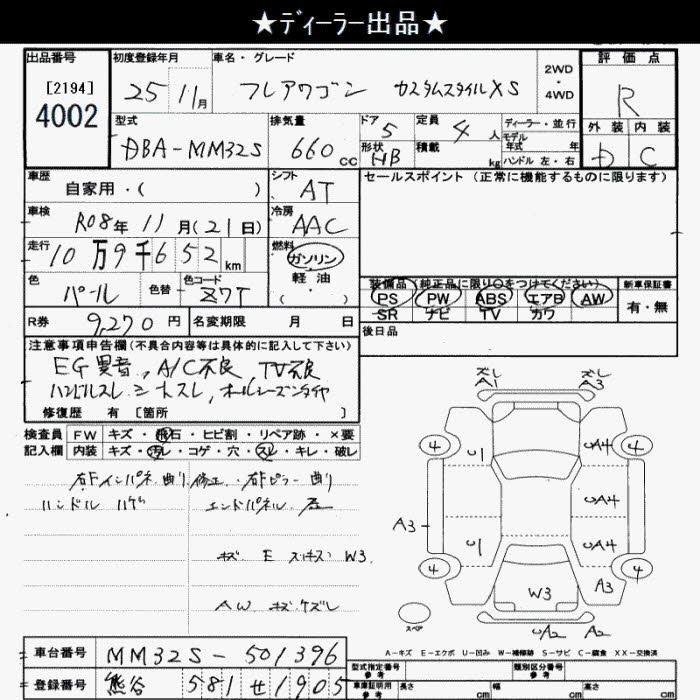 ★ディーラー出品★
出品番号 初度登録年月 車名・グレード 2WD・4WD 評価点
[2194] 4002 25 11月 フレアワゴン カスタムスタイルXS R
型式 排気量 ドア 定員 ディーラー・並行 外装 内装
DBA-MM32S 660cc 5 4人 モデル年式 年 D C
形状 HB 積載 kg ハンドル 左・右
車歴 シフト セールスポイント (正常に機能するものに限ります)
自家用・( ) AT
車検 冷房
R08年11月(21日) AAC
走行 燃料
10万9千652km ガソリン・軽油・( )
色 色替 色コード 装備品(純正品に限り○をつけてください) 新車保証書
パール Z7T PS PW ABS エアB AW 有・無
SR ナビ TV カワ
R券 9,270円 名変期限 月 日 後日品
注意事項申告欄(不具合内容等は具体的に記入して下さい)
EG異音, A/C不良, TV不良
ハンドルスレ シートスレ, オールシーズンタイヤ
修復歴 有 [箇所 ]
検査員 FW キズ・飛石・ヒビ割・リペア跡・×要
記入欄 内装 キズ・汚レ・コゲ・穴・スレ・キレ・破レ
右Fインパネ 曲り 修正・右Fピラー 曲り
ハンドル ハゲ エンドパネル 歪
キズ E スキズ W3
AW キズ ケズレ
ズレ A1 ズレ A3
4 U1 UA4 4
UA4
A3
4 U1 UA4 4
W3 A3
スペア UA2 A2
A-キズ E-エクボ U-凹み W-補修跡 S-サビ C-腐食 XX-交換済
車台番号 MM32S-501396 型式指定番号 参考 類別区分番号 参考
登録番号 熊谷 581 せ 1905 車庫証明用 参考 長さ cm 幅 cm 高さ cm